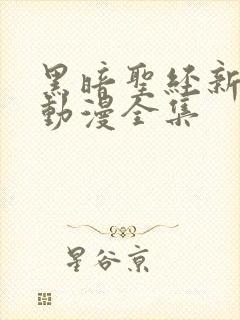 黑暗聖經新
動漫全集
星谷京